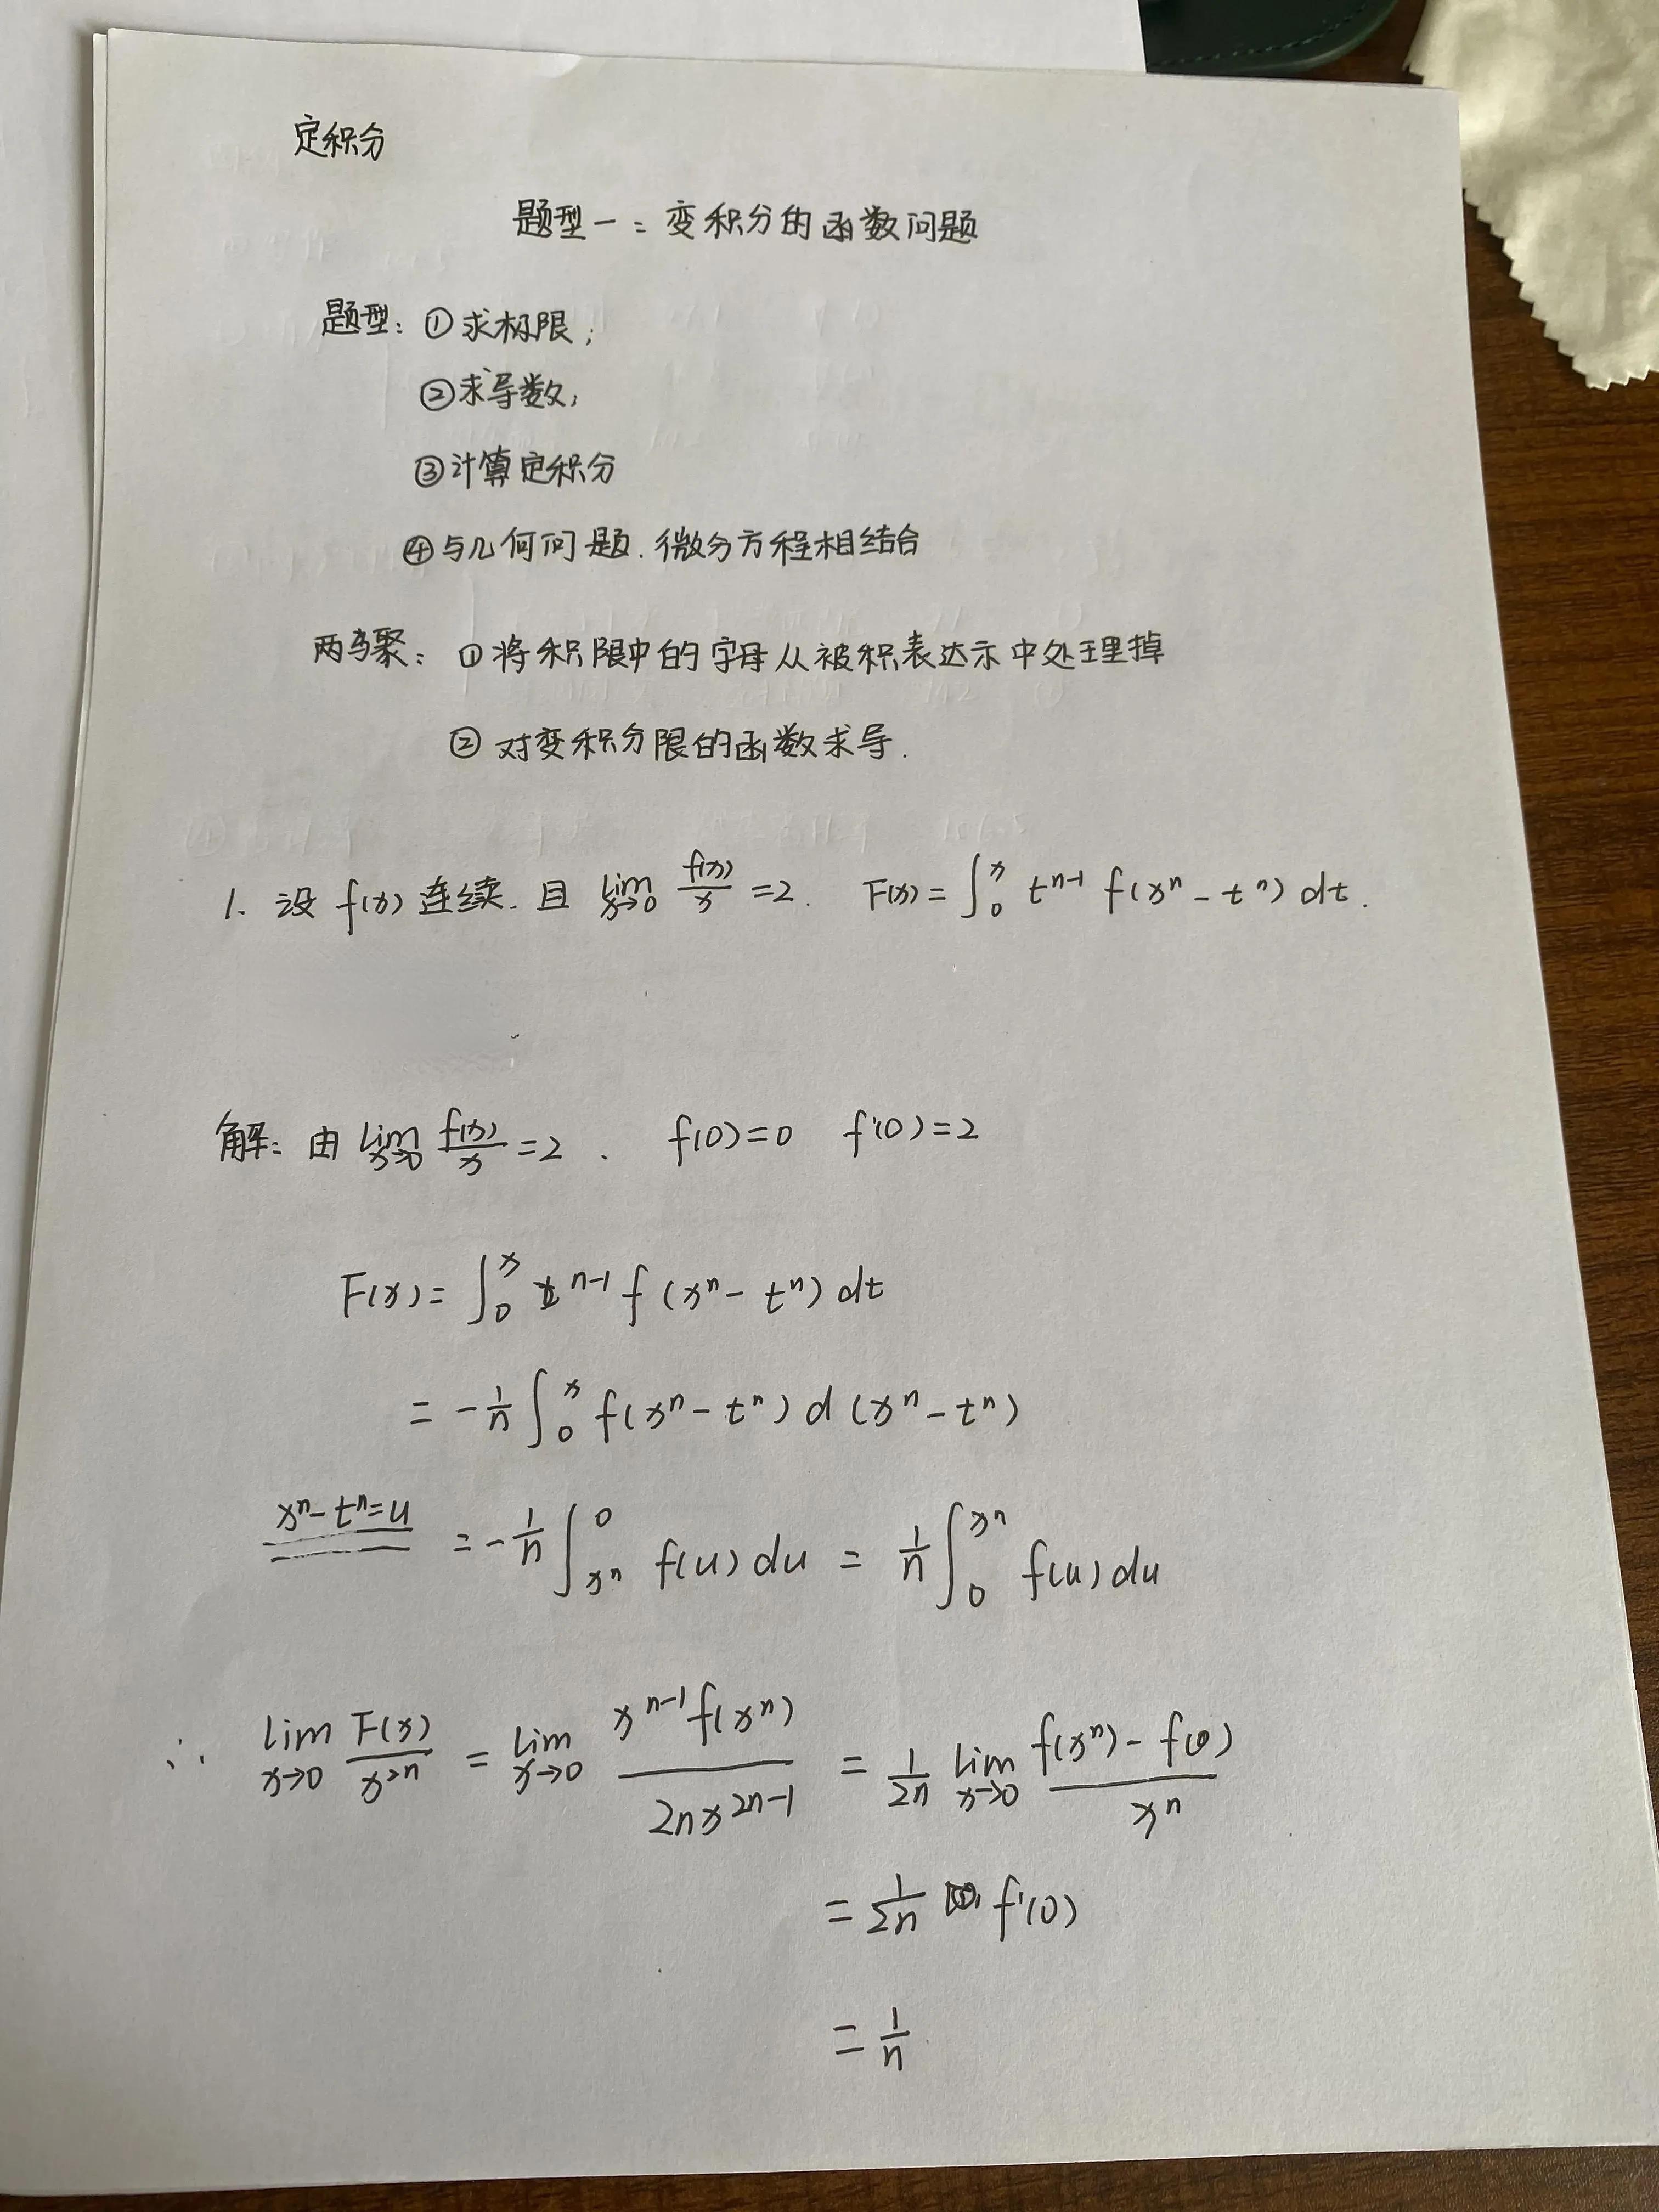 定积分
题型一：变积分的函数问题
题型：①求极限；
②求导数；
③计算定积分
④与几何问题.微分方程相结合
两步骤：①将积限中的字母从被积表达示中处理掉
②对变积分限的函数求导.
1. 设 f(x) 连续. 且 lim_{x→0} f(x)/x = 2. F(x) = ∫_0^x t^{n-1} f(x^n - t^n) dt.
解：由 lim_{x→0} f(x)/x = 2. f(0)=0 f'(0)=2
F(x) = ∫_0^x t^{n-1} f(x^n - t^n) dt
= -1/n ∫_0^x f(x^n - t^n) d(x^n - t^n)
x^n - t^n = u = -1/n ∫_{x^n}^0 f(u) du = 1/n ∫_0^{x^n} f(u) du
∴ lim_{x→0} F(x)/x^{2n} = lim_{x→0} x^{n-1} f(x^n) / 2n x^{2n-1} = 1/2n lim_{x→0} (f(x^n) - f(0)) / x^n
= 1/2n f'(0)
= 1/n